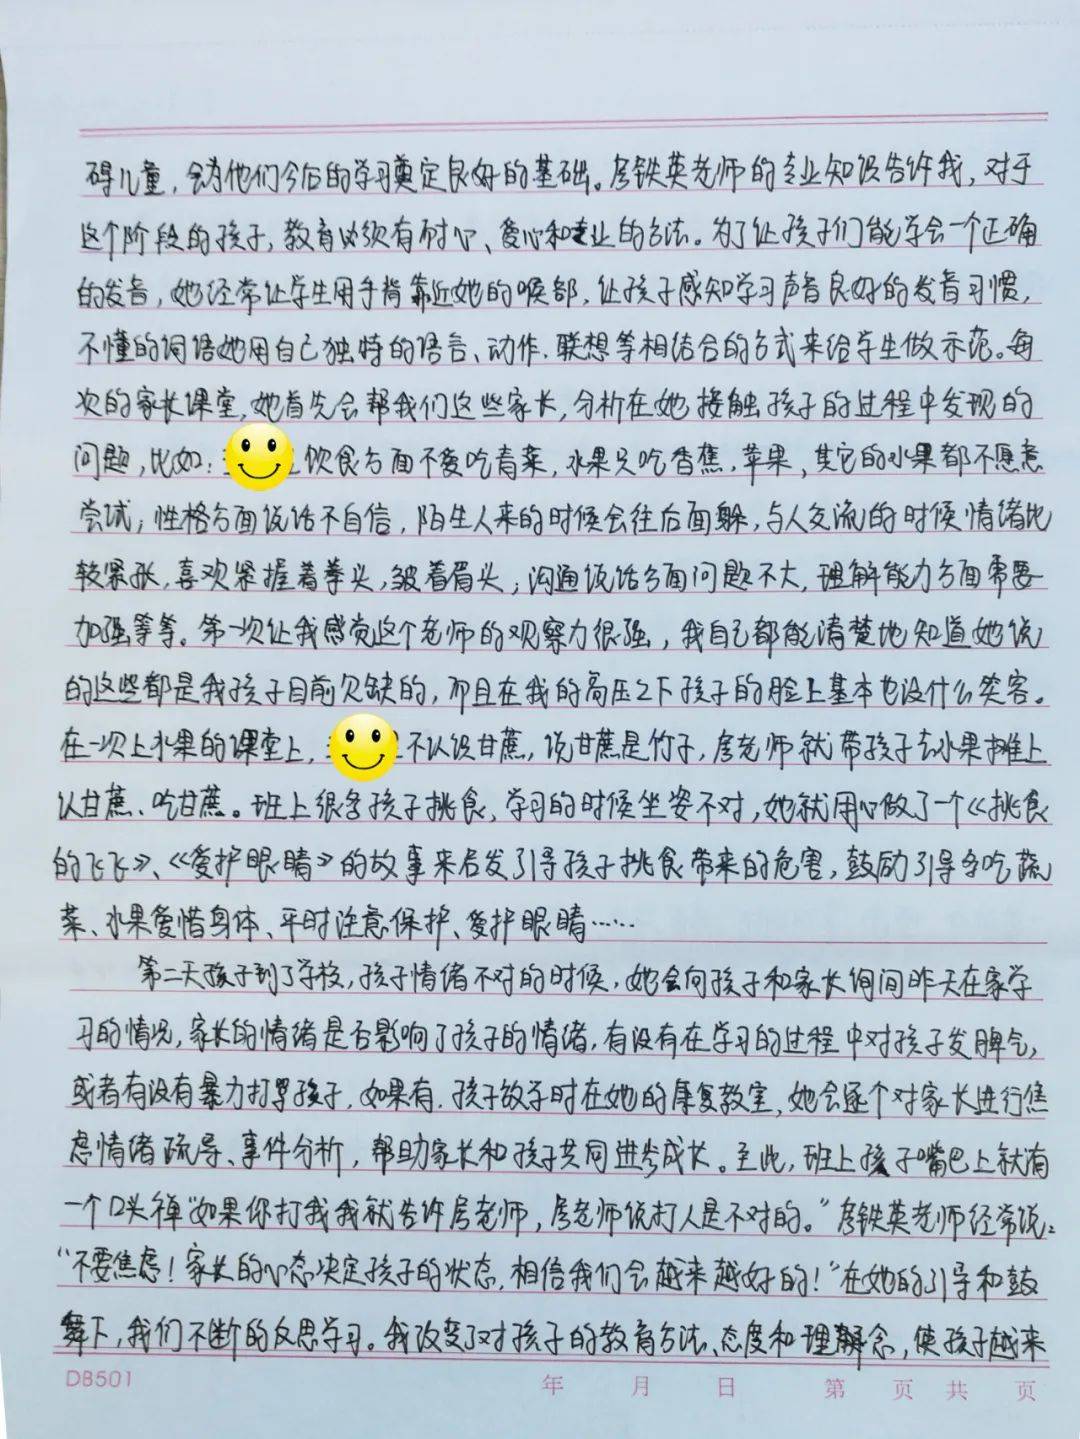 碍儿童，会为他们今后的学习奠定良好的基础。房铁英老师的专业知识告许我，对于
这个阶段的孩子，教育必须有耐心、爱心和专业的方法。为了让孩子们能学会一个正确
的发音，她经常让学生用手背靠近她的喉部，让孩子感知学习声音良好的发音习惯，
不懂的词语她用自己独特的语言、动作．联想等相结合的方式来给学生做示范。每
次的家长课堂，她首先会帮我们这些家长，分析在她接触孩子的过程中发现的
问题，比如：饮食方面不爱吃青菜，水果只吃香蕉，苹果，其它的水果都不愿意
尝试；性格方面说话不自信，陌生人来的时候会往后面躲，与人交流的时候情绪比
较紧张，喜欢紧握着拳头，皱着眉头；沟通说话方面问题不大，理解能力方面需要
加强等等。第一次让我感觉这个老师的观察力很强，我自己都能清楚地知道她说
的这些都是我孩子目前欠缺的，而且在我的高压之下孩子的脸上基本也没什么笑容。
在一次上水果的课堂上，不认识甘蔗，说甘蔗是竹子，房老师就带孩子去水果摊上
认甘蔗、吃甘蔗。班上很多孩子挑食，学习的时候坐姿不对，她就用心做了一个《挑食
的飞飞》、《爱护眼睛》的故事来启发引导孩子挑食带来的危害，鼓励引导多吃蔬
菜、水果爱惜身体、平时注意保护、爱护眼睛……
第二天孩子到了学校，孩子情绪不对的时候，她会向孩子和家长询问昨天在家学
习的情况，家长的情绪是否影响了孩子的情绪，有没有在学习的过程中对孩子发脾气，
或者有没有暴力打骂孩子，如果有．孩子放学时在她的康复教室，她会逐个对家长进行焦
虑情绪疏导、事件分析，帮助家长和孩子共同进步成长。至此，班上孩子嘴巴上就有
一个口头禅“如果你打我我就告许房老师，房老师说打人是不对的。”房铁英老师经常说：
“不要焦虑！家长的心态决定孩子的状态，相信我们会越来越好的！”在她的引导和鼓
舞下，我们不断的反思学习。我改变了对孩子的教育方法、态度和理解念，使孩子越来
DB501 年 月 日 第 页 共 页